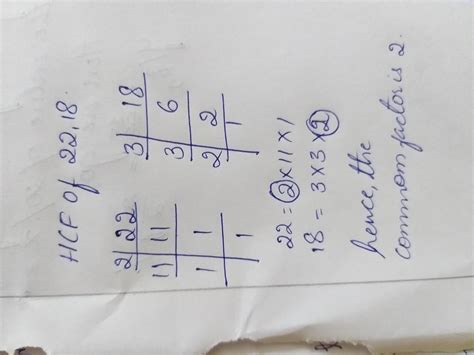 HCF of 22,18.
2 22
11 11
1 1
1
3 18
3 6
2 2
1
22 = 2 x 11 x 1
18 = 3 x 3 x 2
hence, the
common factor is 2.